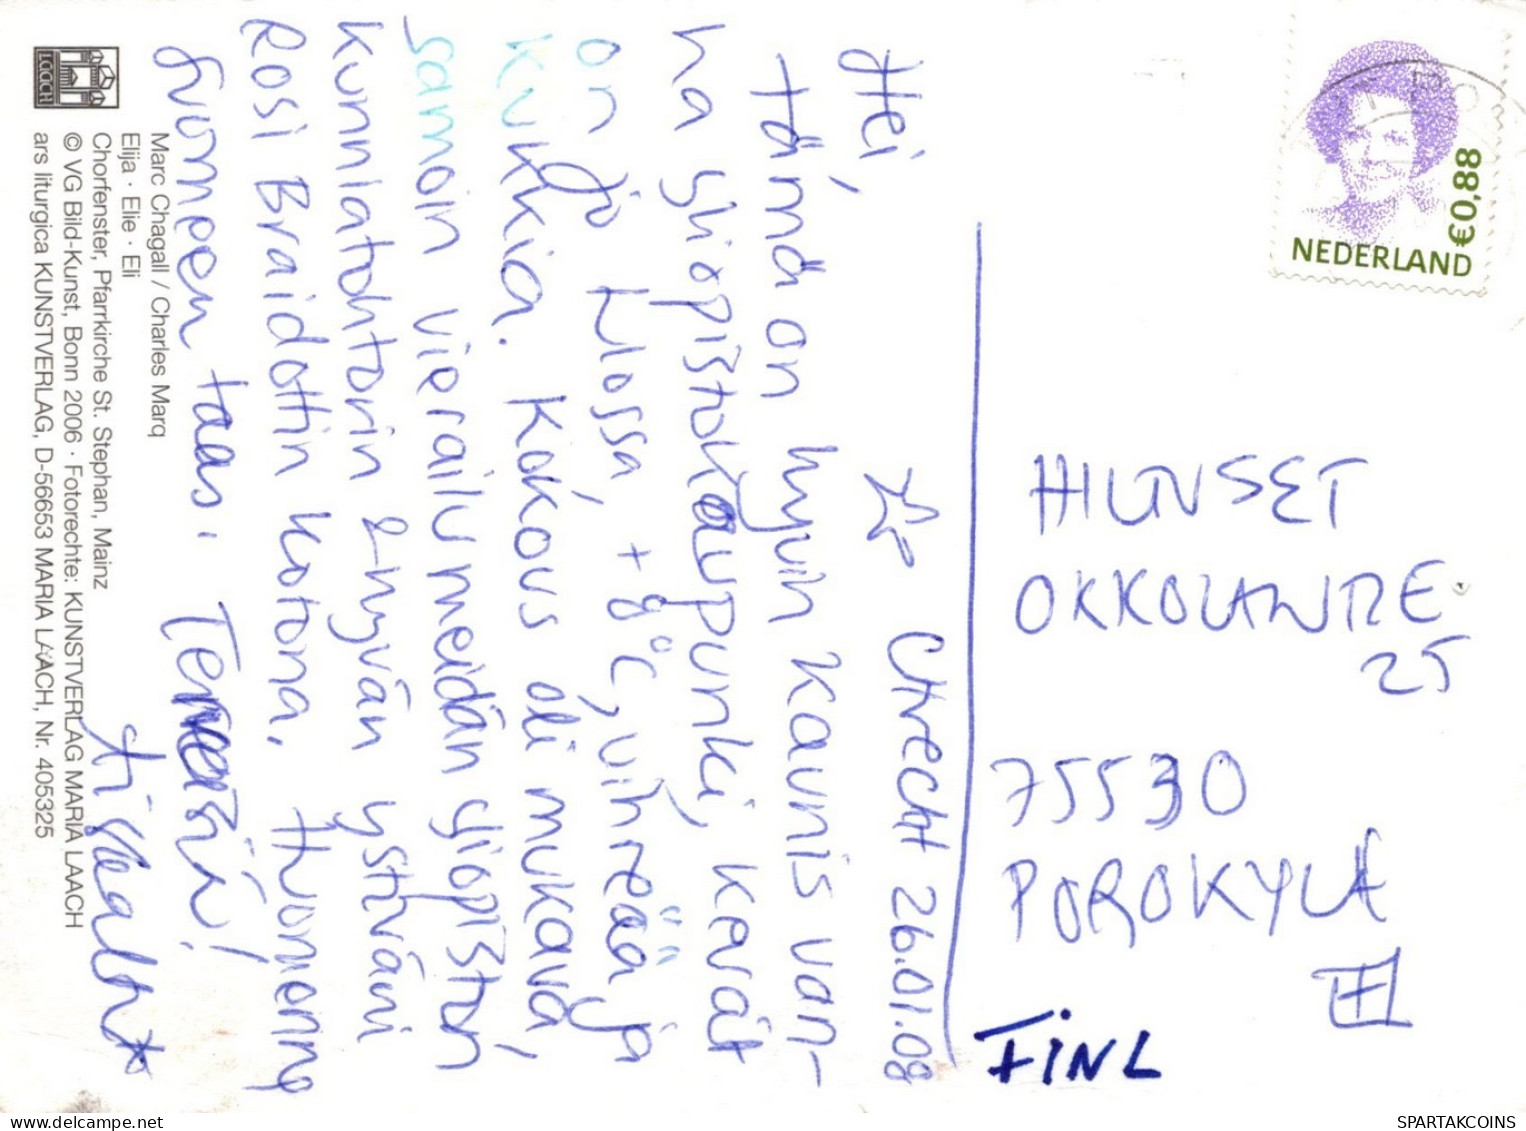 ☆ Utrecht 26.01.08
Hei,
tämä on hyvin kaunis van-
ha yliopistokaupunki, kevät
on jo tulossa, +8°C, vihreää ja
kukkia. Kokous oli mukava,
samoin vierailu meidän yliopiston
kunniatohtorin & hyvän ystäväni
Rosi Braidottin kotona. Huomenna
Suomeen taas. Terveisin!
NEDERLAND
€0,88
OKKOLANTIE
25
75530
POROKYLÄ
FINL
LAACH
Marc Chagall / Charles Marq
Elija · Elie · Eli
Chorfenster, Pfarrkirche St. Stephan, Mainz
© VG Bild-Kunst, Bonn 2006 · Fotorechte: KUNSTVERLAG MARIA LAACH
ars liturgica KUNSTVERLAG, D-56653 MARIA LAACH, Nr. 405325
SPARTAKCOINS